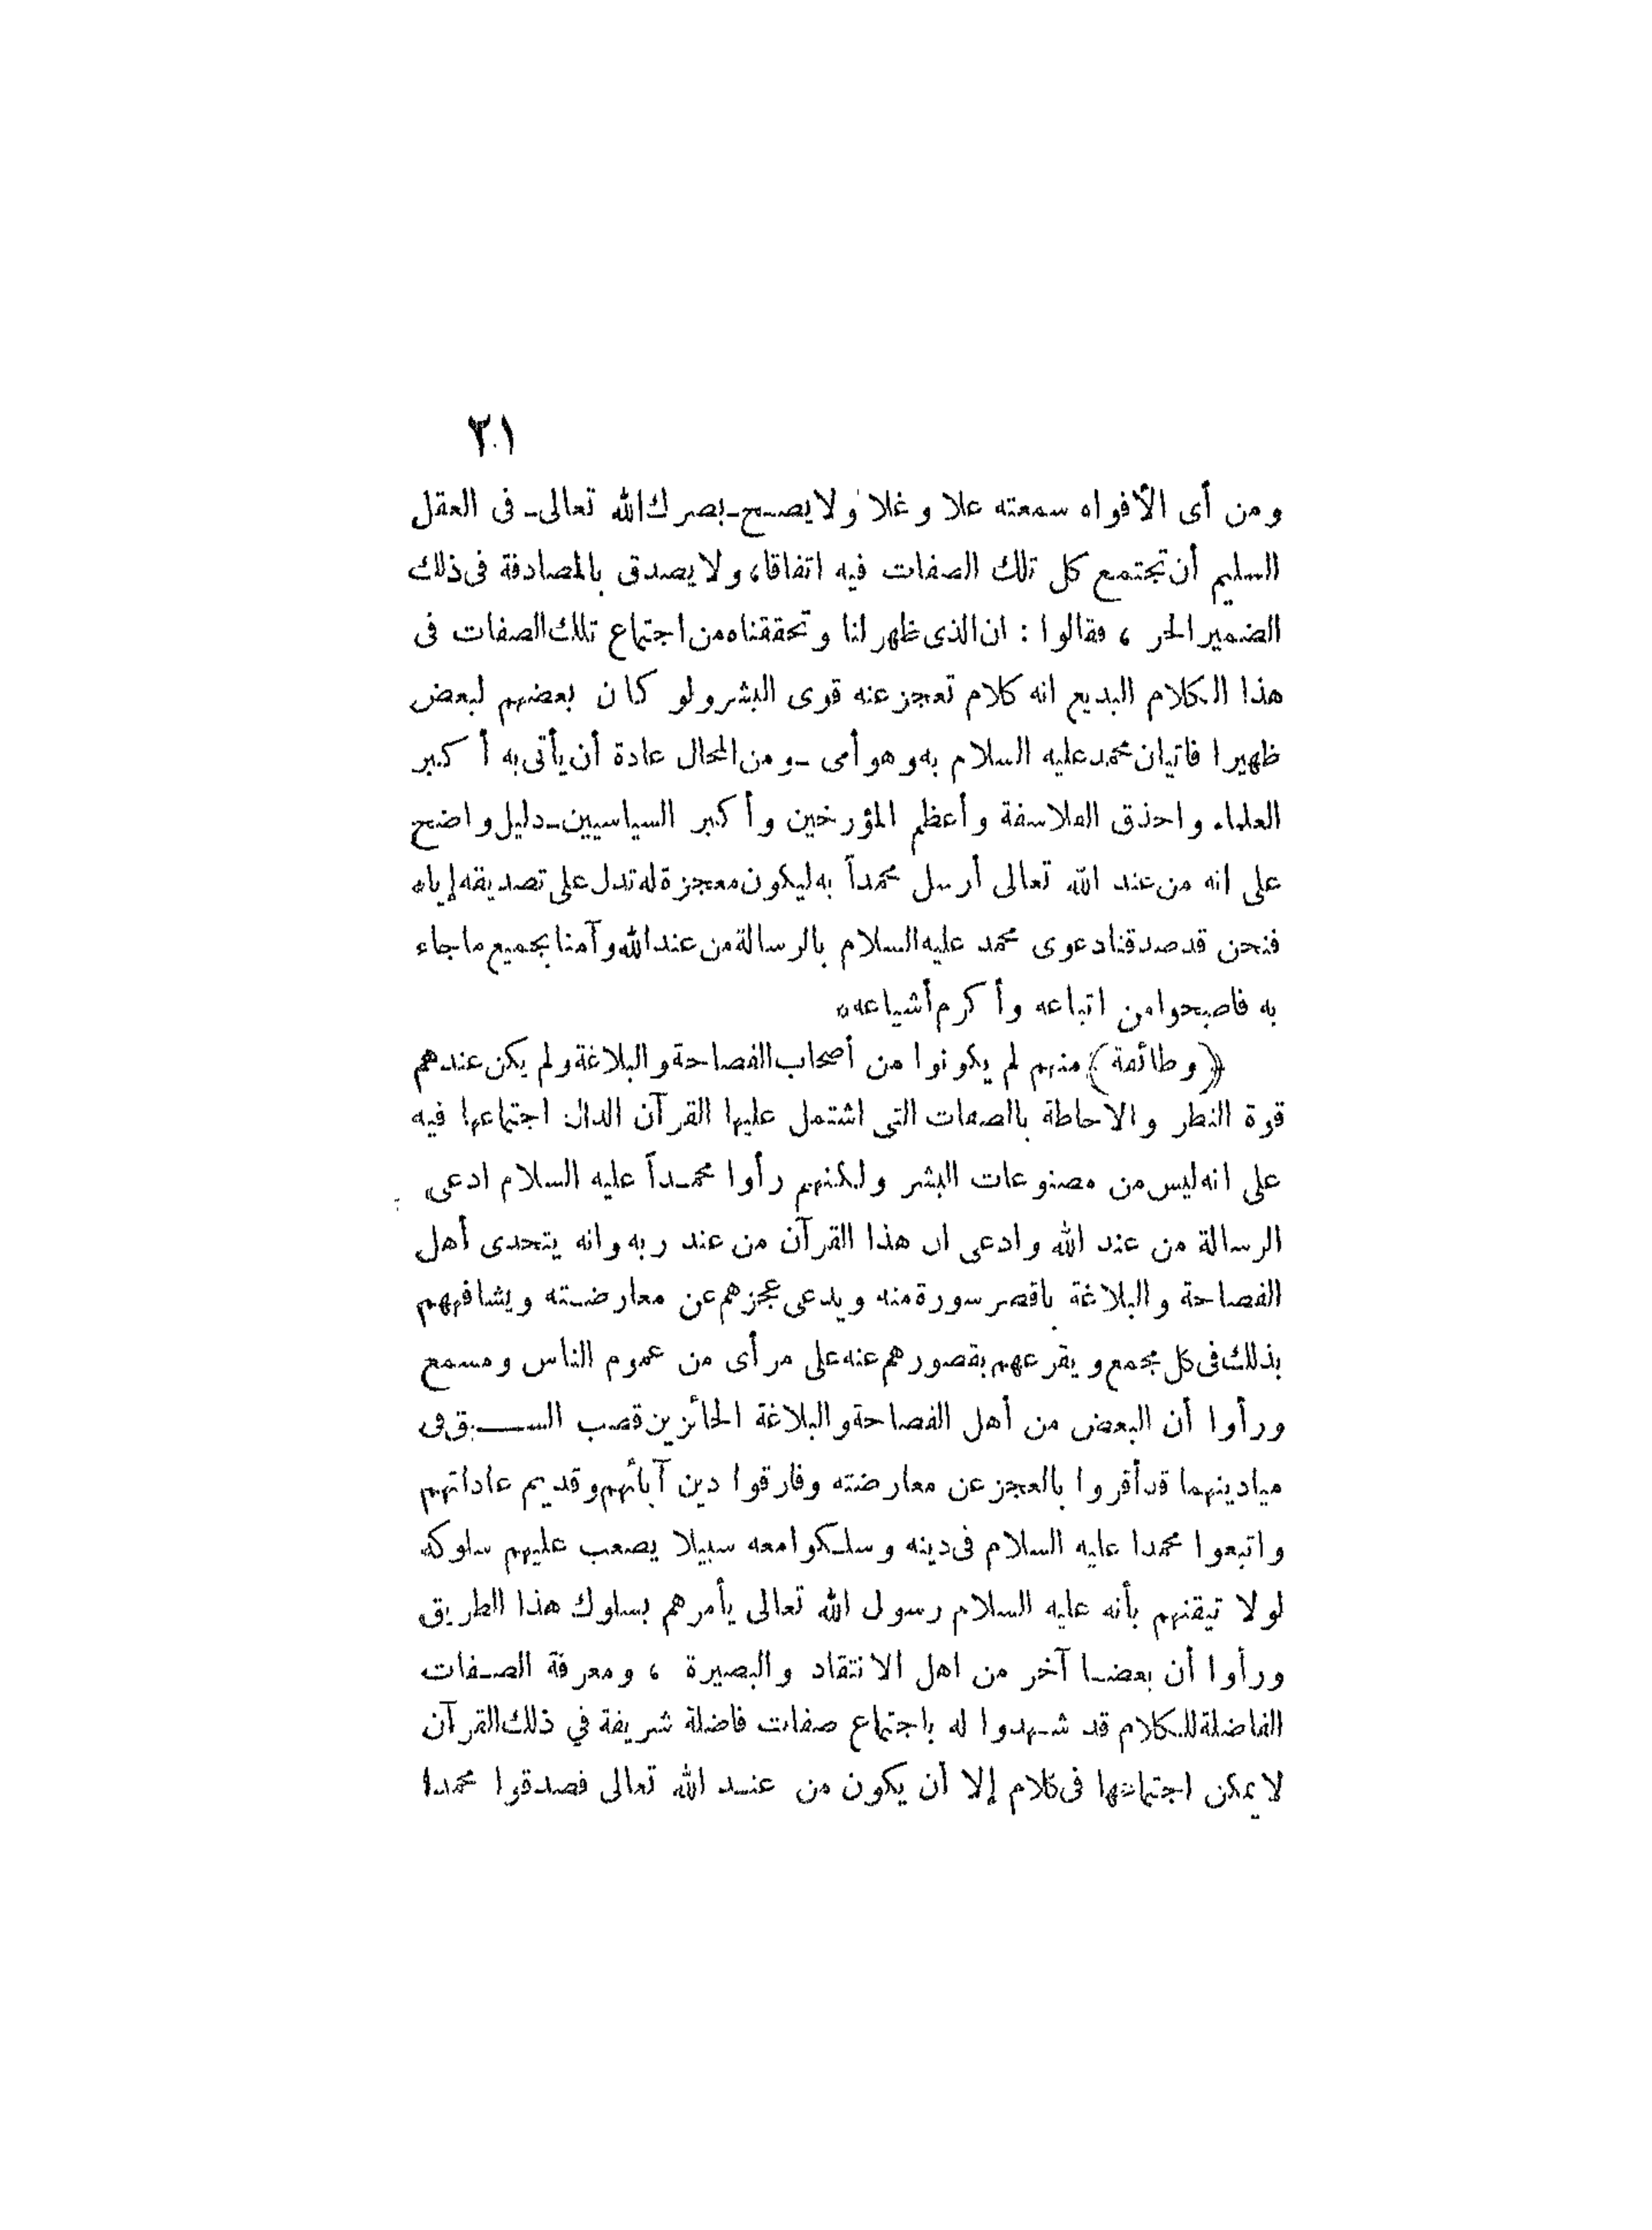 ٢١
ومن أى الأفواه سمعته علا وغلا ولا يصح ـ بصرك الله تعالى ـ فى العقل
السليم أن تجتمع كل تلك الصفات فيه اتفاقا، ولا يصدق بالمصادفة فى ذلك
الضمير الحر ، فقالوا : ان الذى ظهر لنا وتحققناه من اجتماع تلك الصفات فى
هذا الكلام البديع انه كلام تعجز عنه قوى البشر ولو كان بعضهم لبعض
ظهيرا فاتيان محمد عليه السلام به وهو أمى ـ ومن المحال عادة أن يأتى به أكبر
العلماء واحذق الفلاسفة وأعظم المؤرخين وأكبر السياسيين ـ دليل واضح
على انه من عند الله تعالى أرسل محمداً به ليكون معجزة له تدل على تصديقه إياه
فنحن قد صدقنا دعوى محمد عليه السلام بالرسالة من عند الله وآمنا بجميع ما جاء
به فاصبحوا من اتباعه وأكرم أشياعه
﴿ وطائفة ﴾ منهم لم يكونوا من أصحاب الفصاحة والبلاغة ولم يكن عندهم
قوة النظر والاحاطة بالصفات التى اشتمل عليها القرآن الدال اجتماعها فيه
على انه ليس من مصنوعات البشر ولكنهم رأوا محمداً عليه السلام ادعى
الرسالة من عند الله وادعى ان هذا القرآن من عند ربه وانه يتحدى أهل
الفصاحة والبلاغة باقصر سورة منه ويدعى عجزهم عن معارضته ويشافههم
بذلك فى كل مجمع ويقرعهم بقصورهم عنه على مرأى من عموم الناس ومسمع
ورأوا أن البعض من أهل الفصاحة والبلاغة الحائزين قصب السبق فى
ميادينهما قد أقروا بالعجز عن معارضته وفارقوا دين آبائهم وقديم عاداتهم
واتبعوا محمدا عليه السلام فى دينه وسلكوا معه سبيلا يصعب عليهم سلوكه
لولا تيقنهم بأنه عليه السلام رسول الله تعالى يأمرهم بسلوك هذا الطريق
ورأوا أن بعضا آخر من اهل الانتقاد والبصيرة ، ومعرفة الصفات
الفاضلة للكلام قد شهدوا له باجتماع صفات فاضلة شريفة في ذلك القرآن
لا يمكن اجتماعها فى كلام إلا أن يكون من عند الله تعالى فصدقوا محمدا